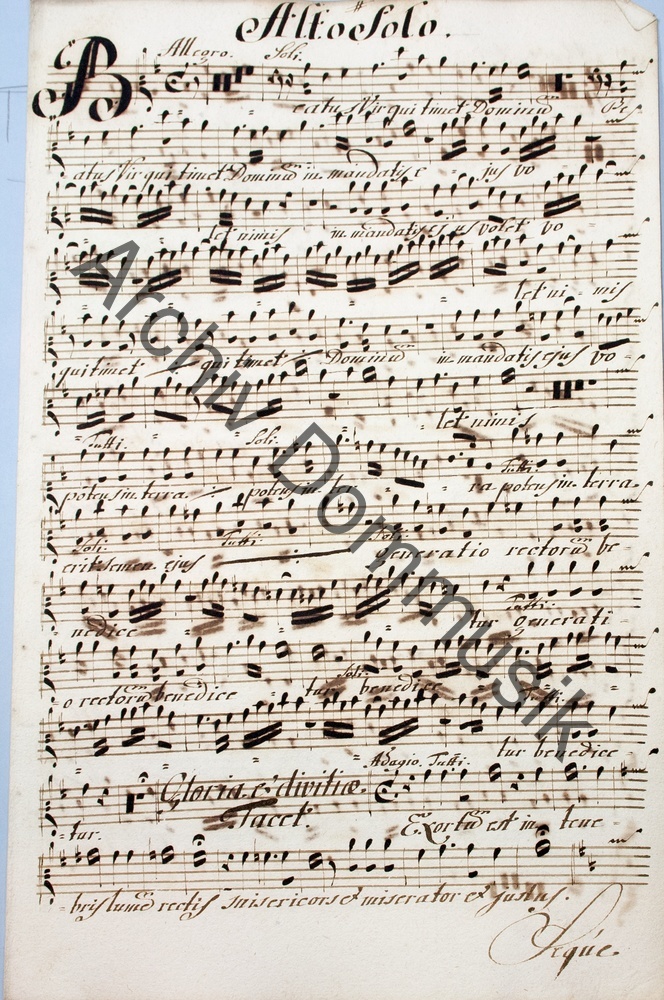 Alto Solo.
Allegro. Soli.
Beatus Vir qui timet Dominū Be-
atus Vir qui timet Dominū in mandatis e- jus vo
let nimis in mandatis ejus volet vo
let ni- mis
qui timet qui timet Dominū in mandatis ejus vo-
let nimis
Tutti. Soli. Tutti.
potens in terra potens in ra potens in terra
Soli. Tutti. Soli.
erit semen ejus generatio rectorū be-
Tutti.
nedice tur generati-
Soli. Tutti.
o rectorū benedice tur benedice
tur benedice
Adagio. Tutti.
Gloria et divitiæ
Tacet.
tur. Exortū est in tene-
bris lumē rectis misericors et miserator et justus.
Seque.
Archiv Dommusik